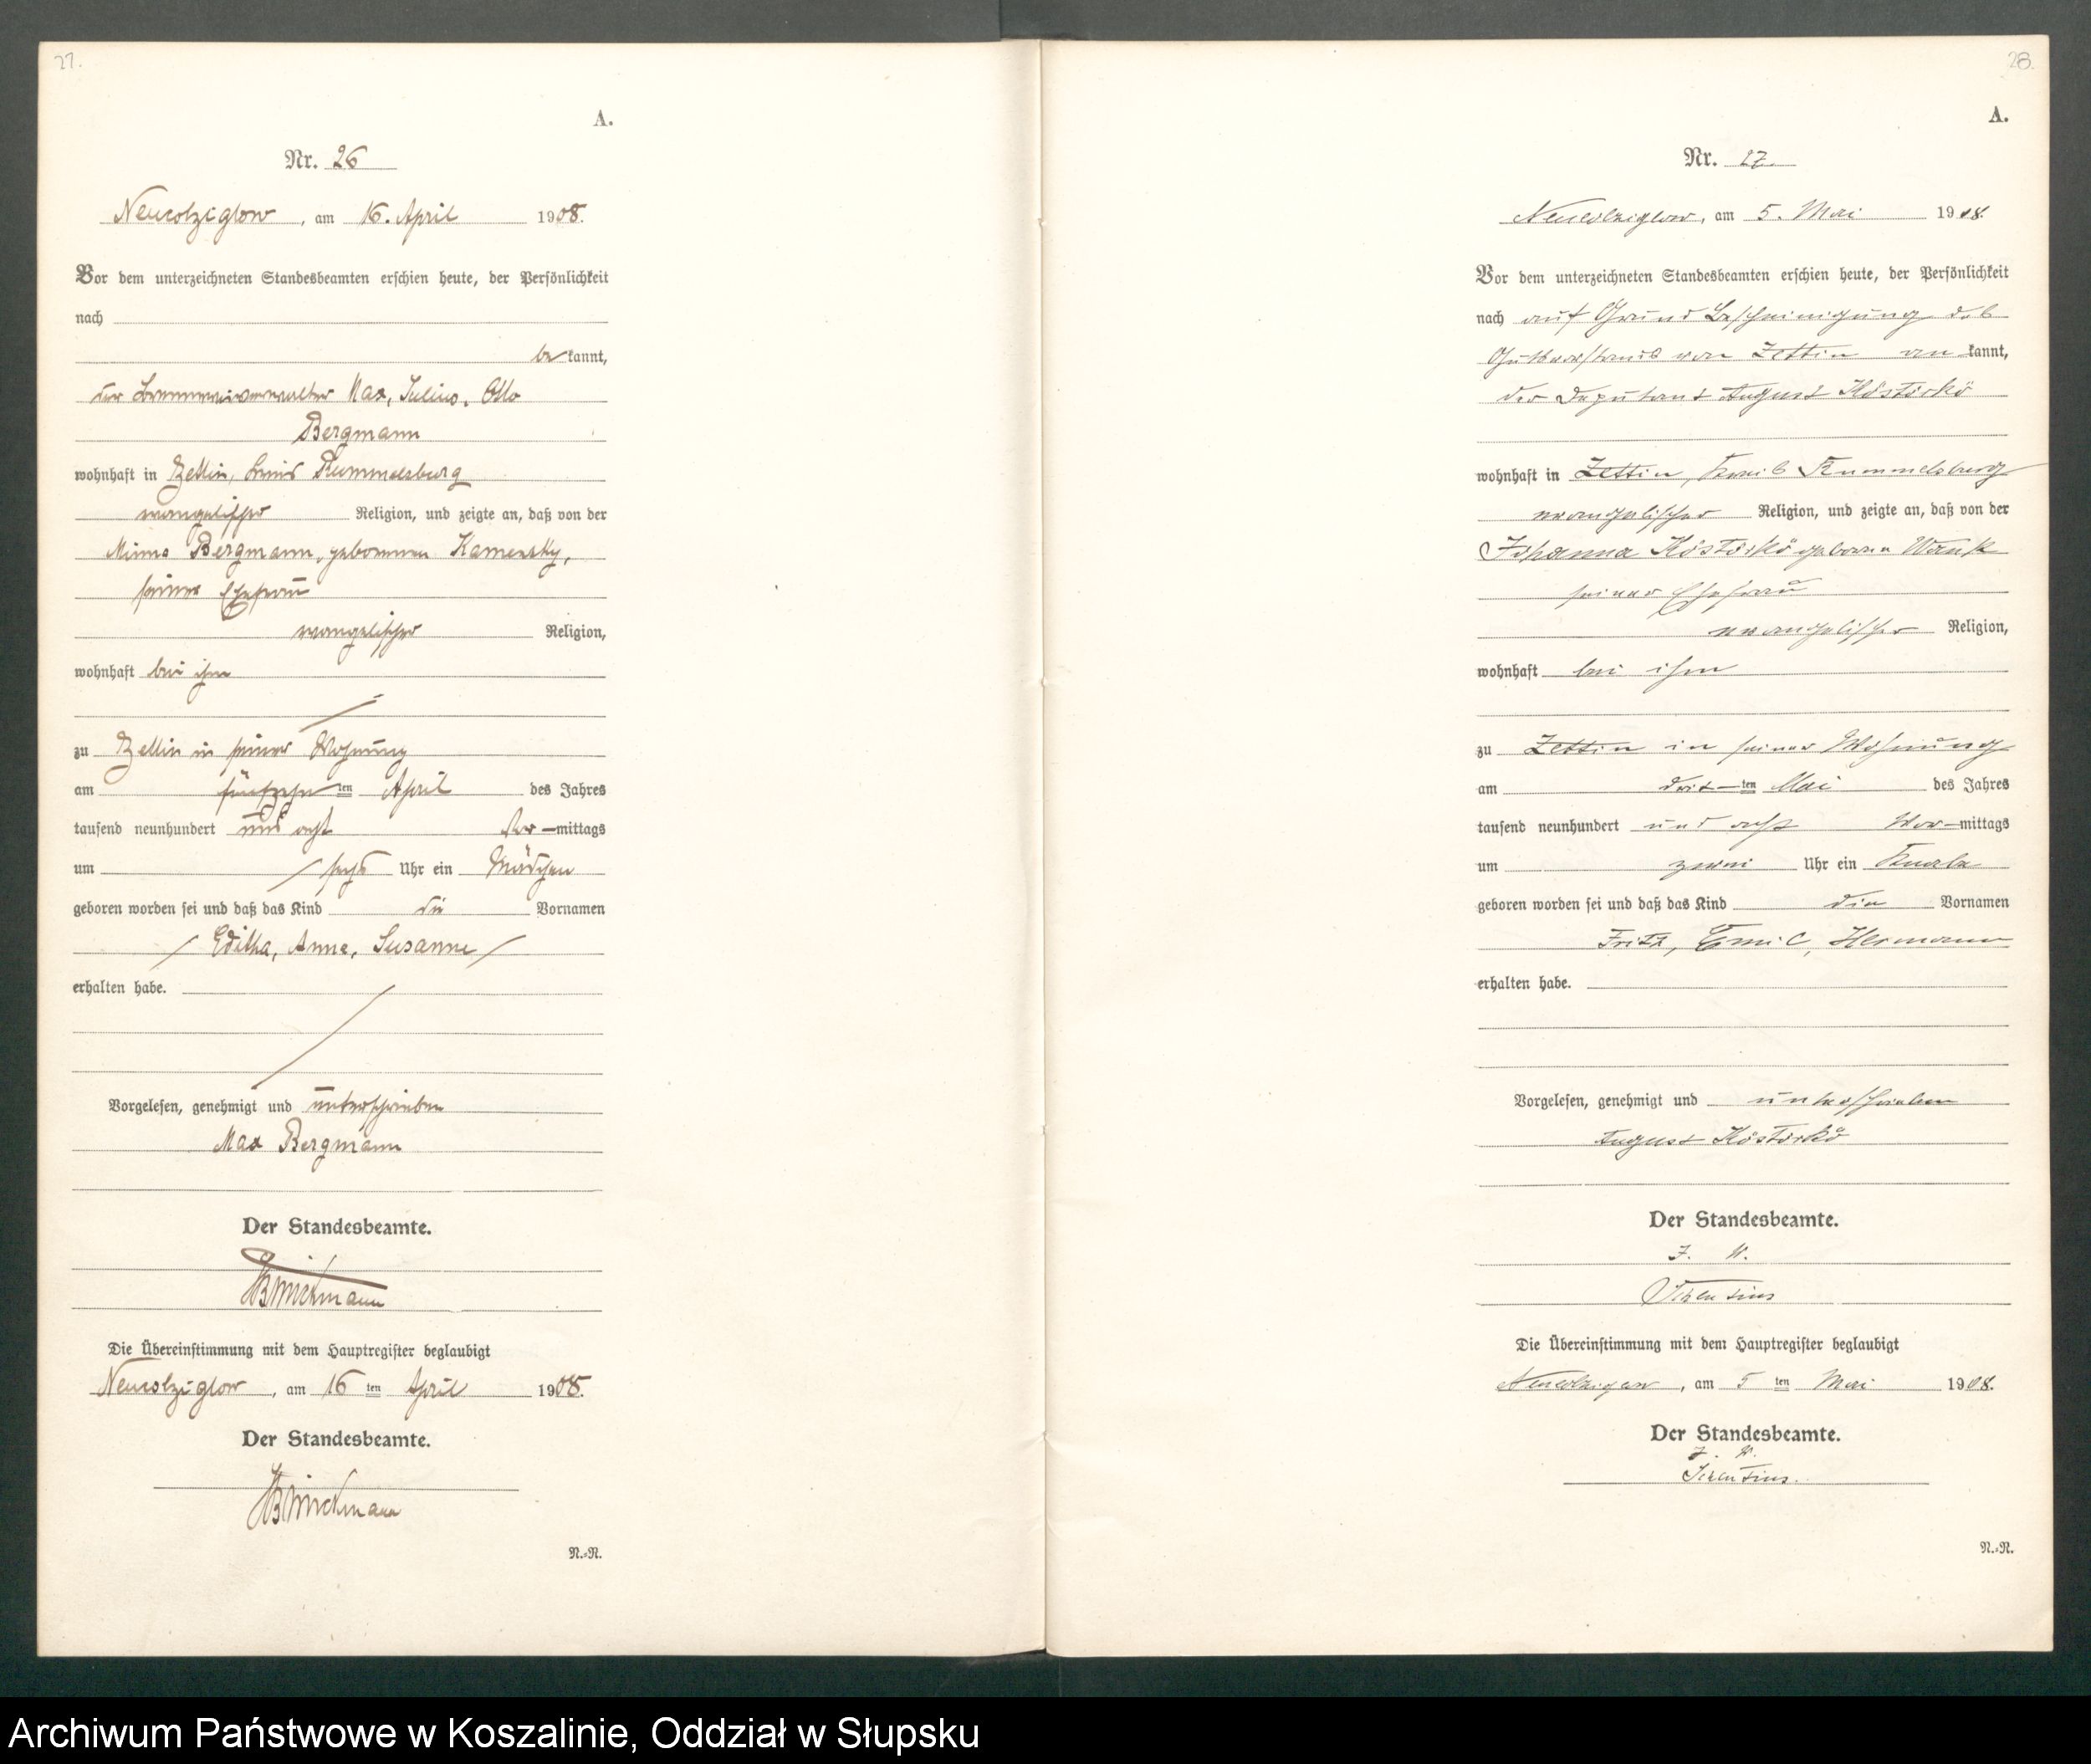 27.
A.
Nr. 26
Neukolziglow, am 16. April 1908.
Vor dem unterzeichneten Standesbeamten erschien heute, der Persönlichkeit
nach
bekannt,
der Brennereiverwalter Max, Julius, Otto
Bergmann
wohnhaft in Zettin, Kreis Rummelsburg
evangelischer Religion, und zeigte an, daß von der
Minna Bergmann, geborenen Kamensky,
seiner Ehefrau
evangelischer Religion,
wohnhaft bei ihm
zu Zettin in seiner Wohnung
am fünfzehnten April des Jahres
tausend neunhundert und acht Vormittags
um sechs Uhr ein Mädchen
geboren worden sei und daß das Kind die Vornamen
Editha, Anna, Susanne
erhalten habe.
Vorgelesen, genehmigt und unterschrieben
Max Bergmann
Der Standesbeamte.
Brückmann
Die Übereinstimmung mit dem Hauptregister beglaubigt
Neukolziglow, am 16ten April 1908.
Der Standesbeamte.
Brückmann
N.=N.
28.
A.
Nr. 27.
Neukolziglow, am 5. Mai 1908.
Vor dem unterzeichneten Standesbeamten erschien heute, der Persönlichkeit
nach auf Grund Bescheinigung des
Gutsvorstands von Zettin ankannt,
der Deputant August Köstörkö
wohnhaft in Zettin, Kreis Rummelsburg
evangelischer Religion, und zeigte an, daß von der
Johanna Köstörkö geborne Wank
seiner Ehefrau
evangelischer Religion,
wohnhaft bei ihm
zu Zettin in seiner Wohnung
am dritten Mai des Jahres
tausend neunhundert und acht Vormittags
um zwei Uhr ein Knabe
geboren worden sei und daß das Kind die Vornamen
Fritz, Emil, Hermann
erhalten habe.
Vorgelesen, genehmigt und unterschrieben
August Köstörkö
Der Standesbeamte.
J. V.
Die Übereinstimmung mit dem Hauptregister beglaubigt
Neukolziglow, am 5ten Mai 1908.
Der Standesbeamte.
J. V.
N.=N.
Archiwum Państwowe w Koszalinie, Oddział w Słupsku